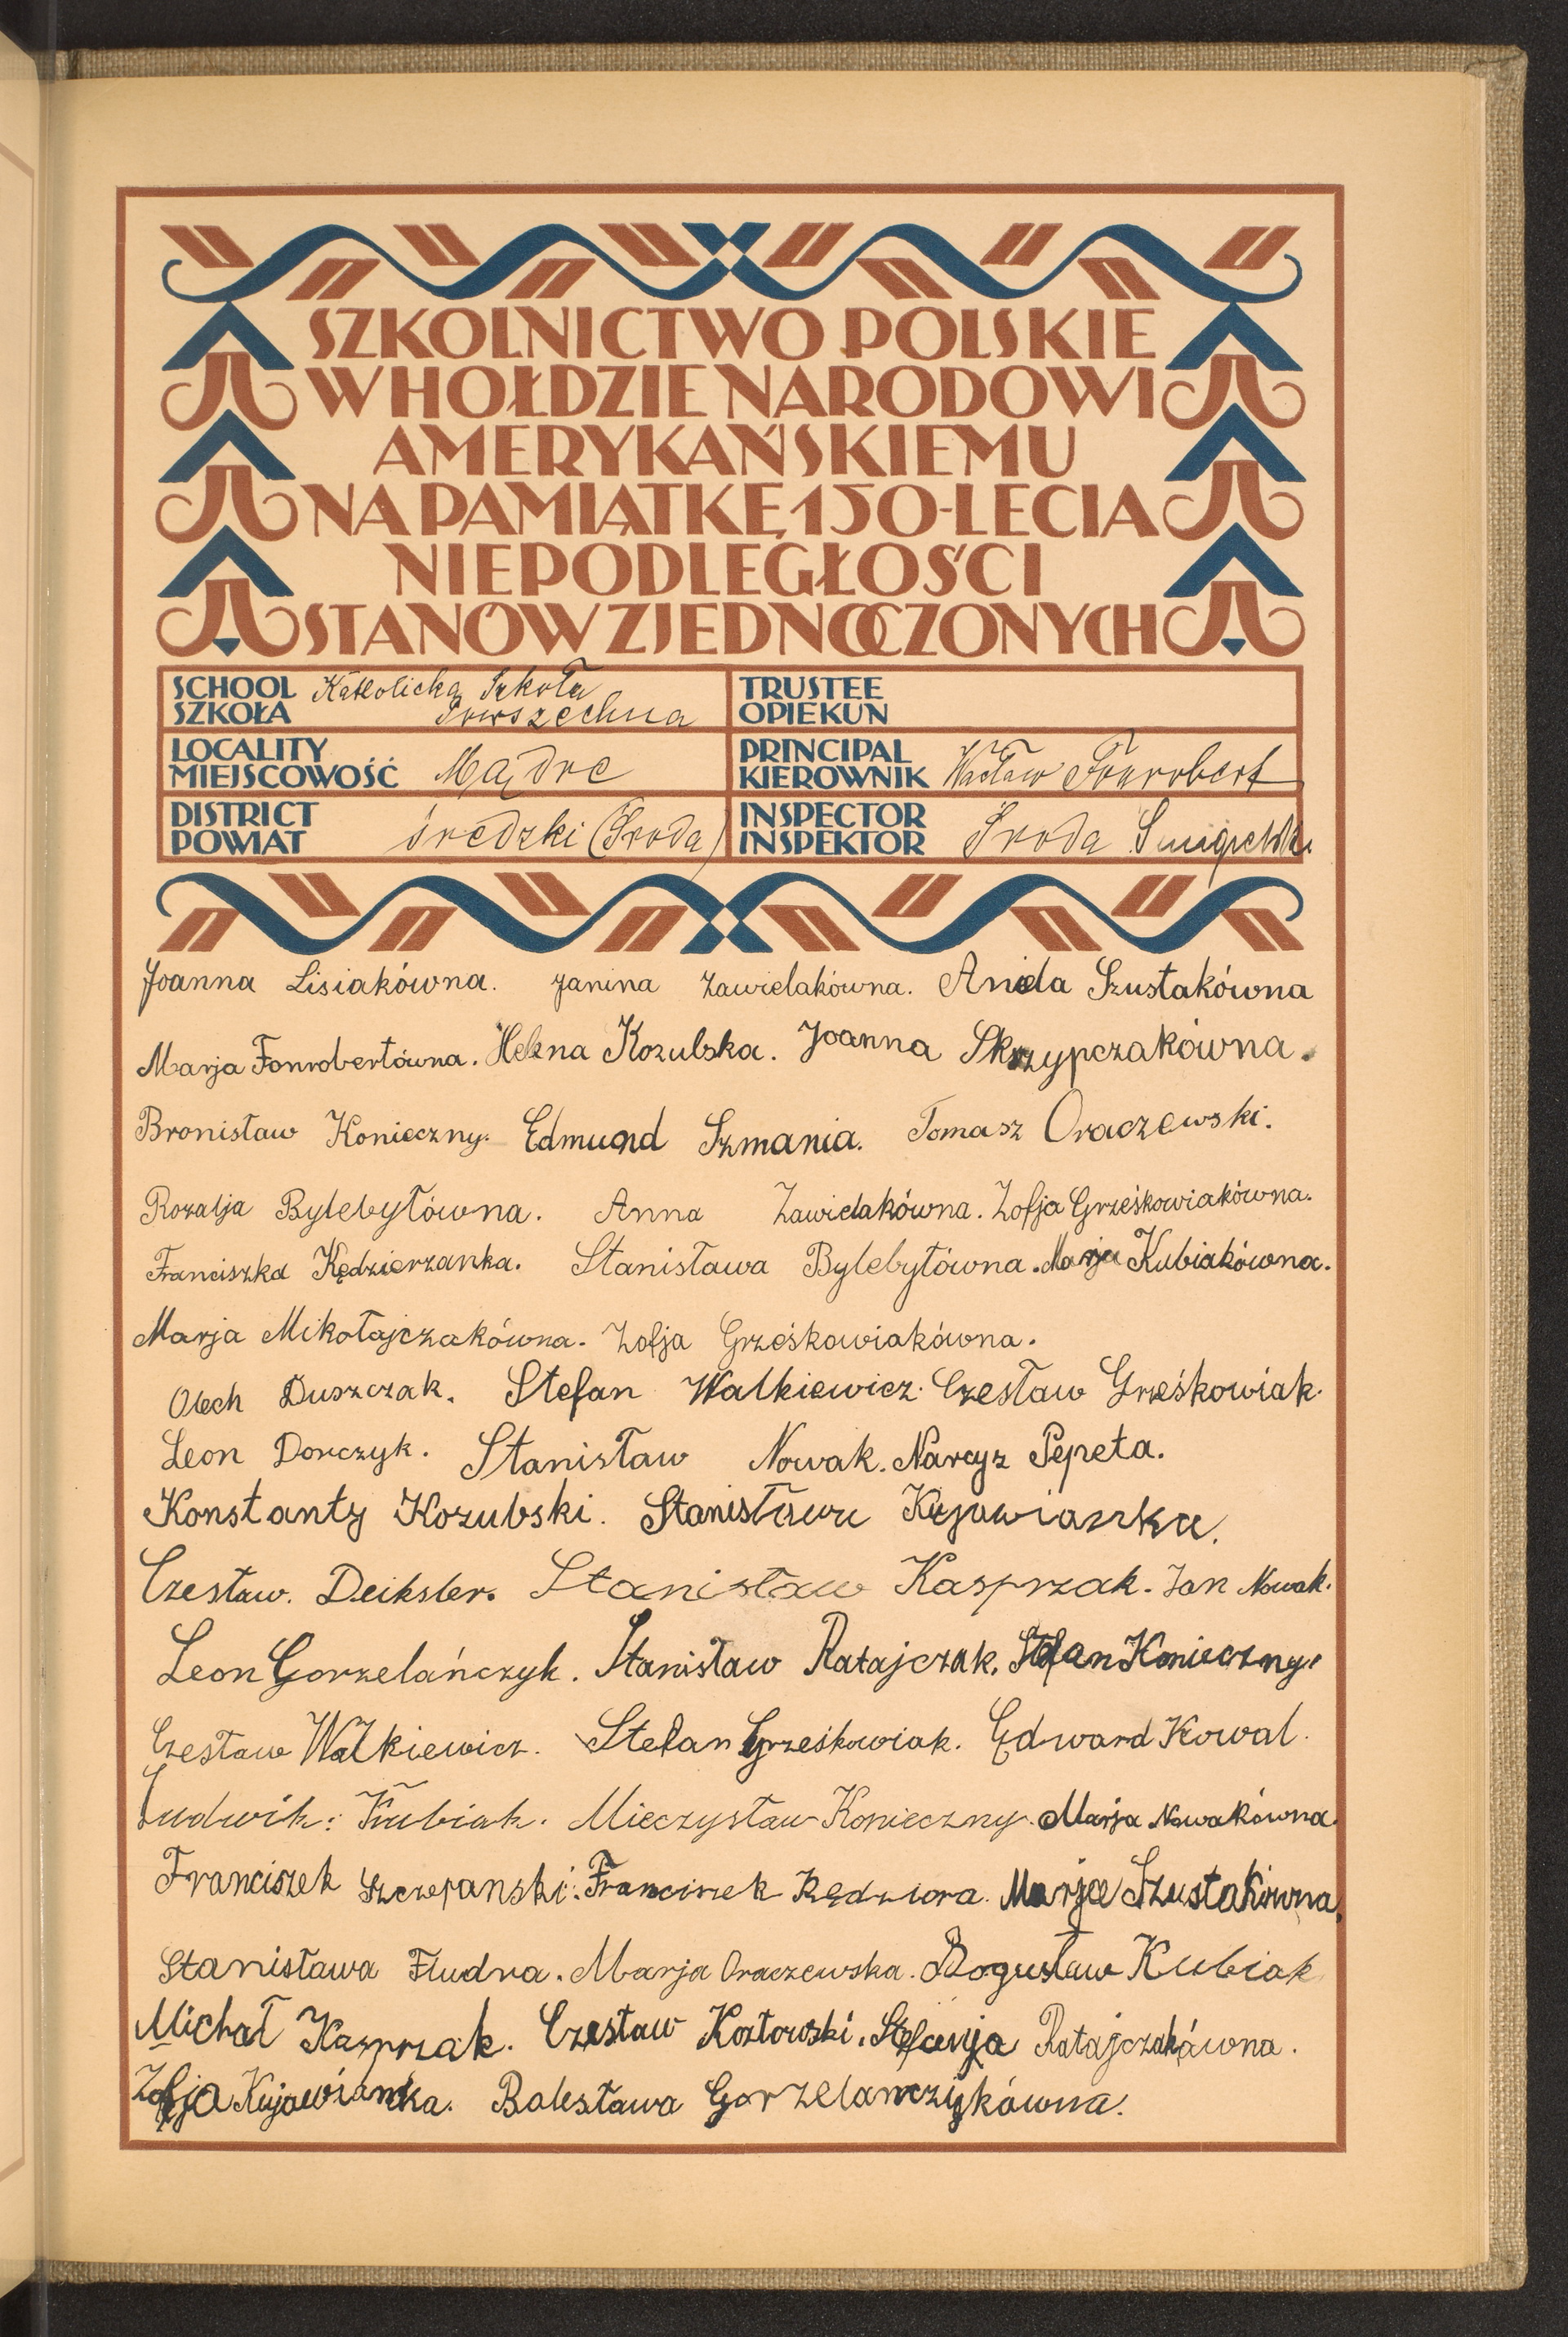 SZKOLNICTWO POLSKIE
W HOŁDZIE NARODOWI
AMERYKAŃSKIEMU
NA PAMIĄTKĘ 150-LECIA
NIEPODLEGŁOŚCI
STANÓW ZJEDNOCZONYCH
SCHOOL
SZKOŁA
Katolicka Szkoła
Powszechna
TRUSTEE
OPIEKUN
LOCALITY
MIEJSCOWOŚĆ
Mądre
PRINCIPAL
KIEROWNIK
Wacław Fonrobert
DISTRICT
POWIAT
średzki (Środa)
INSPECTOR
INSPEKTOR
Środa
Joanna Lisiakówna. Janina Zawielakówna. Aniela Szustakówna
Marja Fonrobertówna. Helena Kozubska. Joanna Skrzypczakówna.
Bronisław Konieczny. Edmund Szmania. Tomasz Oraczewski.
Rozalja Bylebyłówna. Anna Zawielakówna. Zofja Grześkowiakówna.
Franciszka Kędzierzanka. Stanisława Bylebyłówna. Marja Kubiakówna.
Marja Mikołajczakówna. Zofja Grześkowiakówna.
Olech Duszczak. Stefan Walkiewicz. Czesław Grześkowiak.
Leon Dorczyk. Stanisław Nowak. Narcyz Pepeta.
Konstanty Kozubski. Stanisława Kujawianka.
Czesław. Deiksler. Stanisław Kasprzak. Jan Nowak.
Leon Gorzelańczyk. Stanisław Ratajczak. Stefan Konieczny.
Czesław Walkiewicz. Stefan Grześkowiak. Edward Kowal.
Ludwik: Kubiak. Mieczysław Konieczny. Marja Nowakówna.
Franciszek Szczepanski. Franciszek Kędziora. Marja Szustakówna.
Stanisława Fludra. Marja Oraczewska. Bogusław Kubiak
Michał Kasprzak. Czesław Kozłowski. Stefanja Ratajczakówna.
Zofja Kujawianka. Bolesława Gorzelanczykówna.